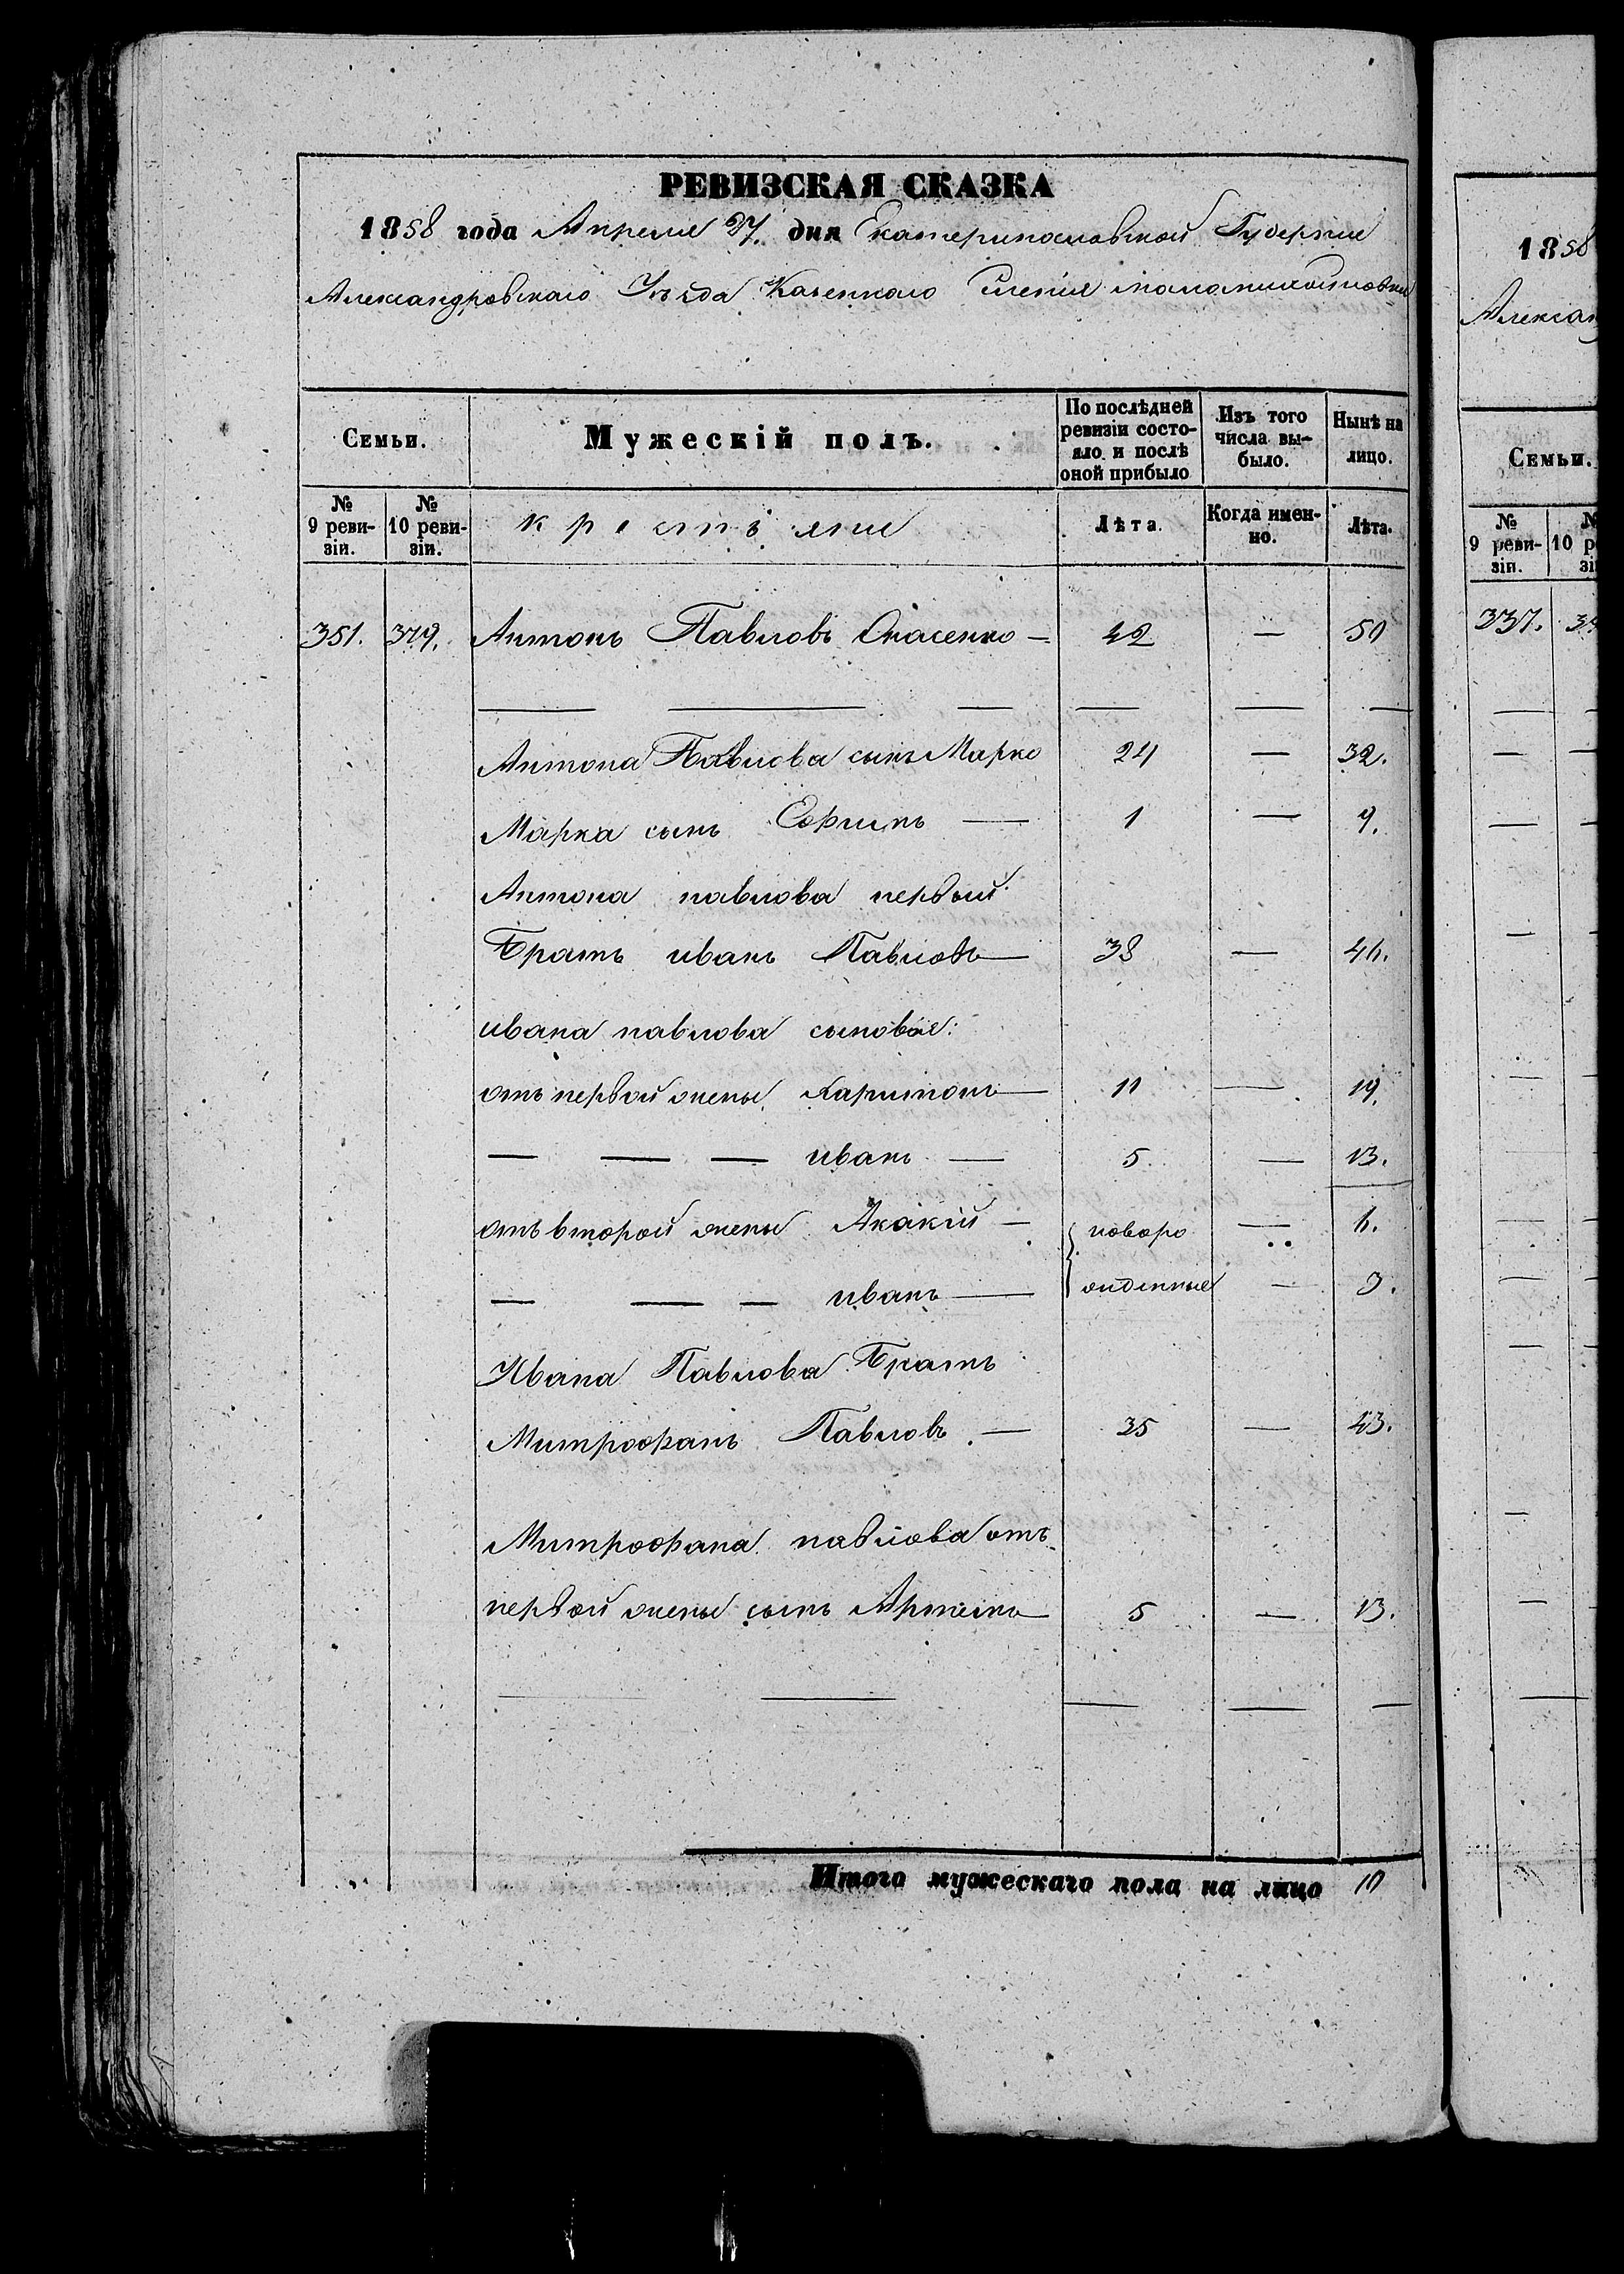 РЕВИЗСКАЯ СКАЗКА
1858 года Апреля 27. дня Екатеринославской Губернии
Александровскаго Уѣзда Казеннаго Селенія маломихайловки
Семьи. Мужескій полъ. По послѣдней ревизіи состояло и послѣ оной прибыло Изъ того числа выбыло. Нынѣ на лицо.
№ 9 ревизіи. № 10 ревизіи. крестьяне Лѣта. Когда именно. Лѣта.
351. 349. Антонъ Павловъ Опасенко — 42 — 50
— — — — — —
Антона Павлова сынъ Марко 24 — 32.
Марка сынъ Ефимъ — 1 — 9.
Антона павлова первый
Братъ иванъ Павловъ — 38 — 46.
ивана павлова сыновья:
отъ первой жены Харитонъ — 11 — 19.
— — — иванъ — 5. — 13.
отъ второй жены Акакій — новоро — 6.
— — — иванъ — жденные — 3.
Ивана Павлова Братъ
Митрофанъ Павловъ — 35 — 43.
Митрофана павлова отъ
первой жены сынъ Артемъ — 5 — 13.
— — — — —
Итого мужескаго пола на лицо 10
1858
Алексан
Семьи.
№ 9 ревизіи.
337.